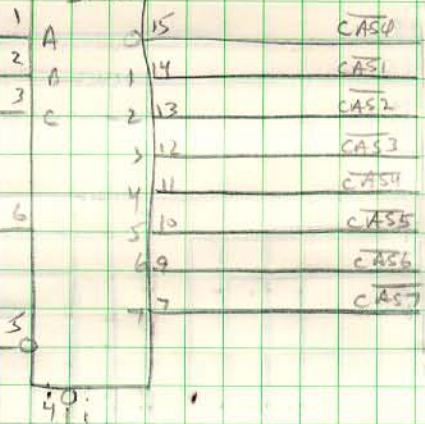 1 A 0 15 CAS0
2 B 1 14 CAS1
3 C 2 13 CAS2
3 12 CAS3
4 11 CAS4
6 5 10 CAS5
6 9 CAS6
7 7 CAS7
5
4